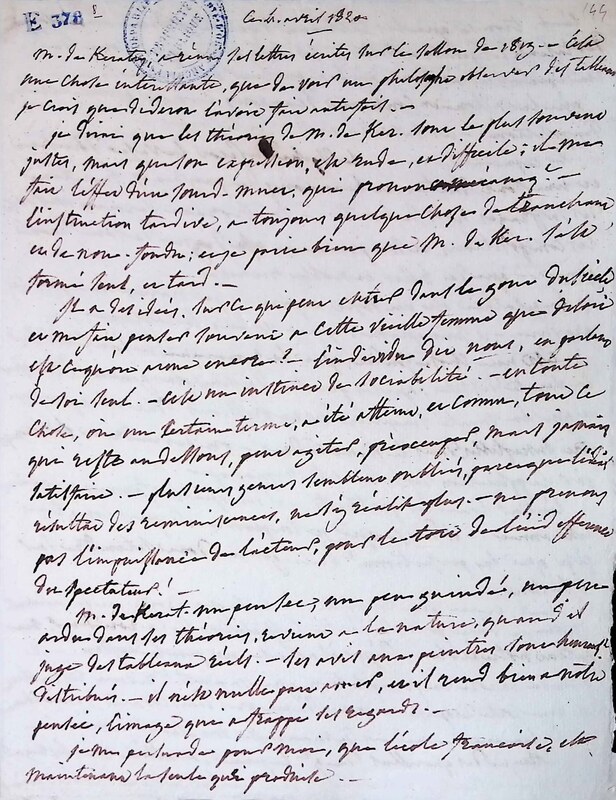 E 378 s
144
Ce 4. avril 1820
M. de Keratry, a réuni ses lettres écrites sur le sallon de 1819 – C'est
une chose intéressante, que de voir un philosophe observer des tableaux
je crois que diderot l'avoit fait autrefois. –
je dirai que les théories de M. de Ker. sont le plus souvent
justes, mais que son expression, est rude, et difficile ; il me
fait l'effet d'un sourd-muet, qui prononce
l'instruction tardive, a toujours quelque chose de tranchant
et de non-fondu ; et je pense bien que M. de Ker. s'est
formé seul, et tard. –
Il a des idées, sur ce que peut entrer dans le gout du siècle
et me fait penser souvent a cette vieille femme qui disoit
est ce qu'on aime encore ? – l'individu dit nous, en parlant
de soi seul. – c'est un instinct de sociabilité – en toute
chose, où un certain terme, a été atteint, et connu, tout ce
qui reste au dessous, peut agiter, préoccuper, mais jamais
satisfaire. – plusieurs genres semblent oubliés, parce que l'idéal
résultat des reminiscences, ne s'y réalise plus. – ne prenons
pas l'impuissance de l'acteur, pour le tort de l'indifférence
du spectateur ! –
M. de Kerat. un peu sec, un peu guindé, un peu
ardu dans ses théories, revient a la nature, quand il
juge des tableaux réels. – ses avis aux peintres sont heureusemt
distribués. – il n'est nulle part amer, et il rend bien a notre
pensée, l'image qui a frappé ses regards. –
je me persuade pour moi, que l'école françoise, est
maintenant la seule qui produise. –